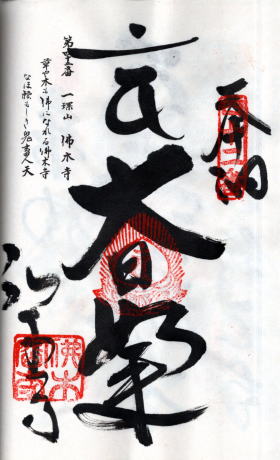 奉納
大日如来
第四十二番 一𤧛山 佛木寺
草も木も佛になれる佛木寺
なほ頼もしき鬼畜人天
仏木寺